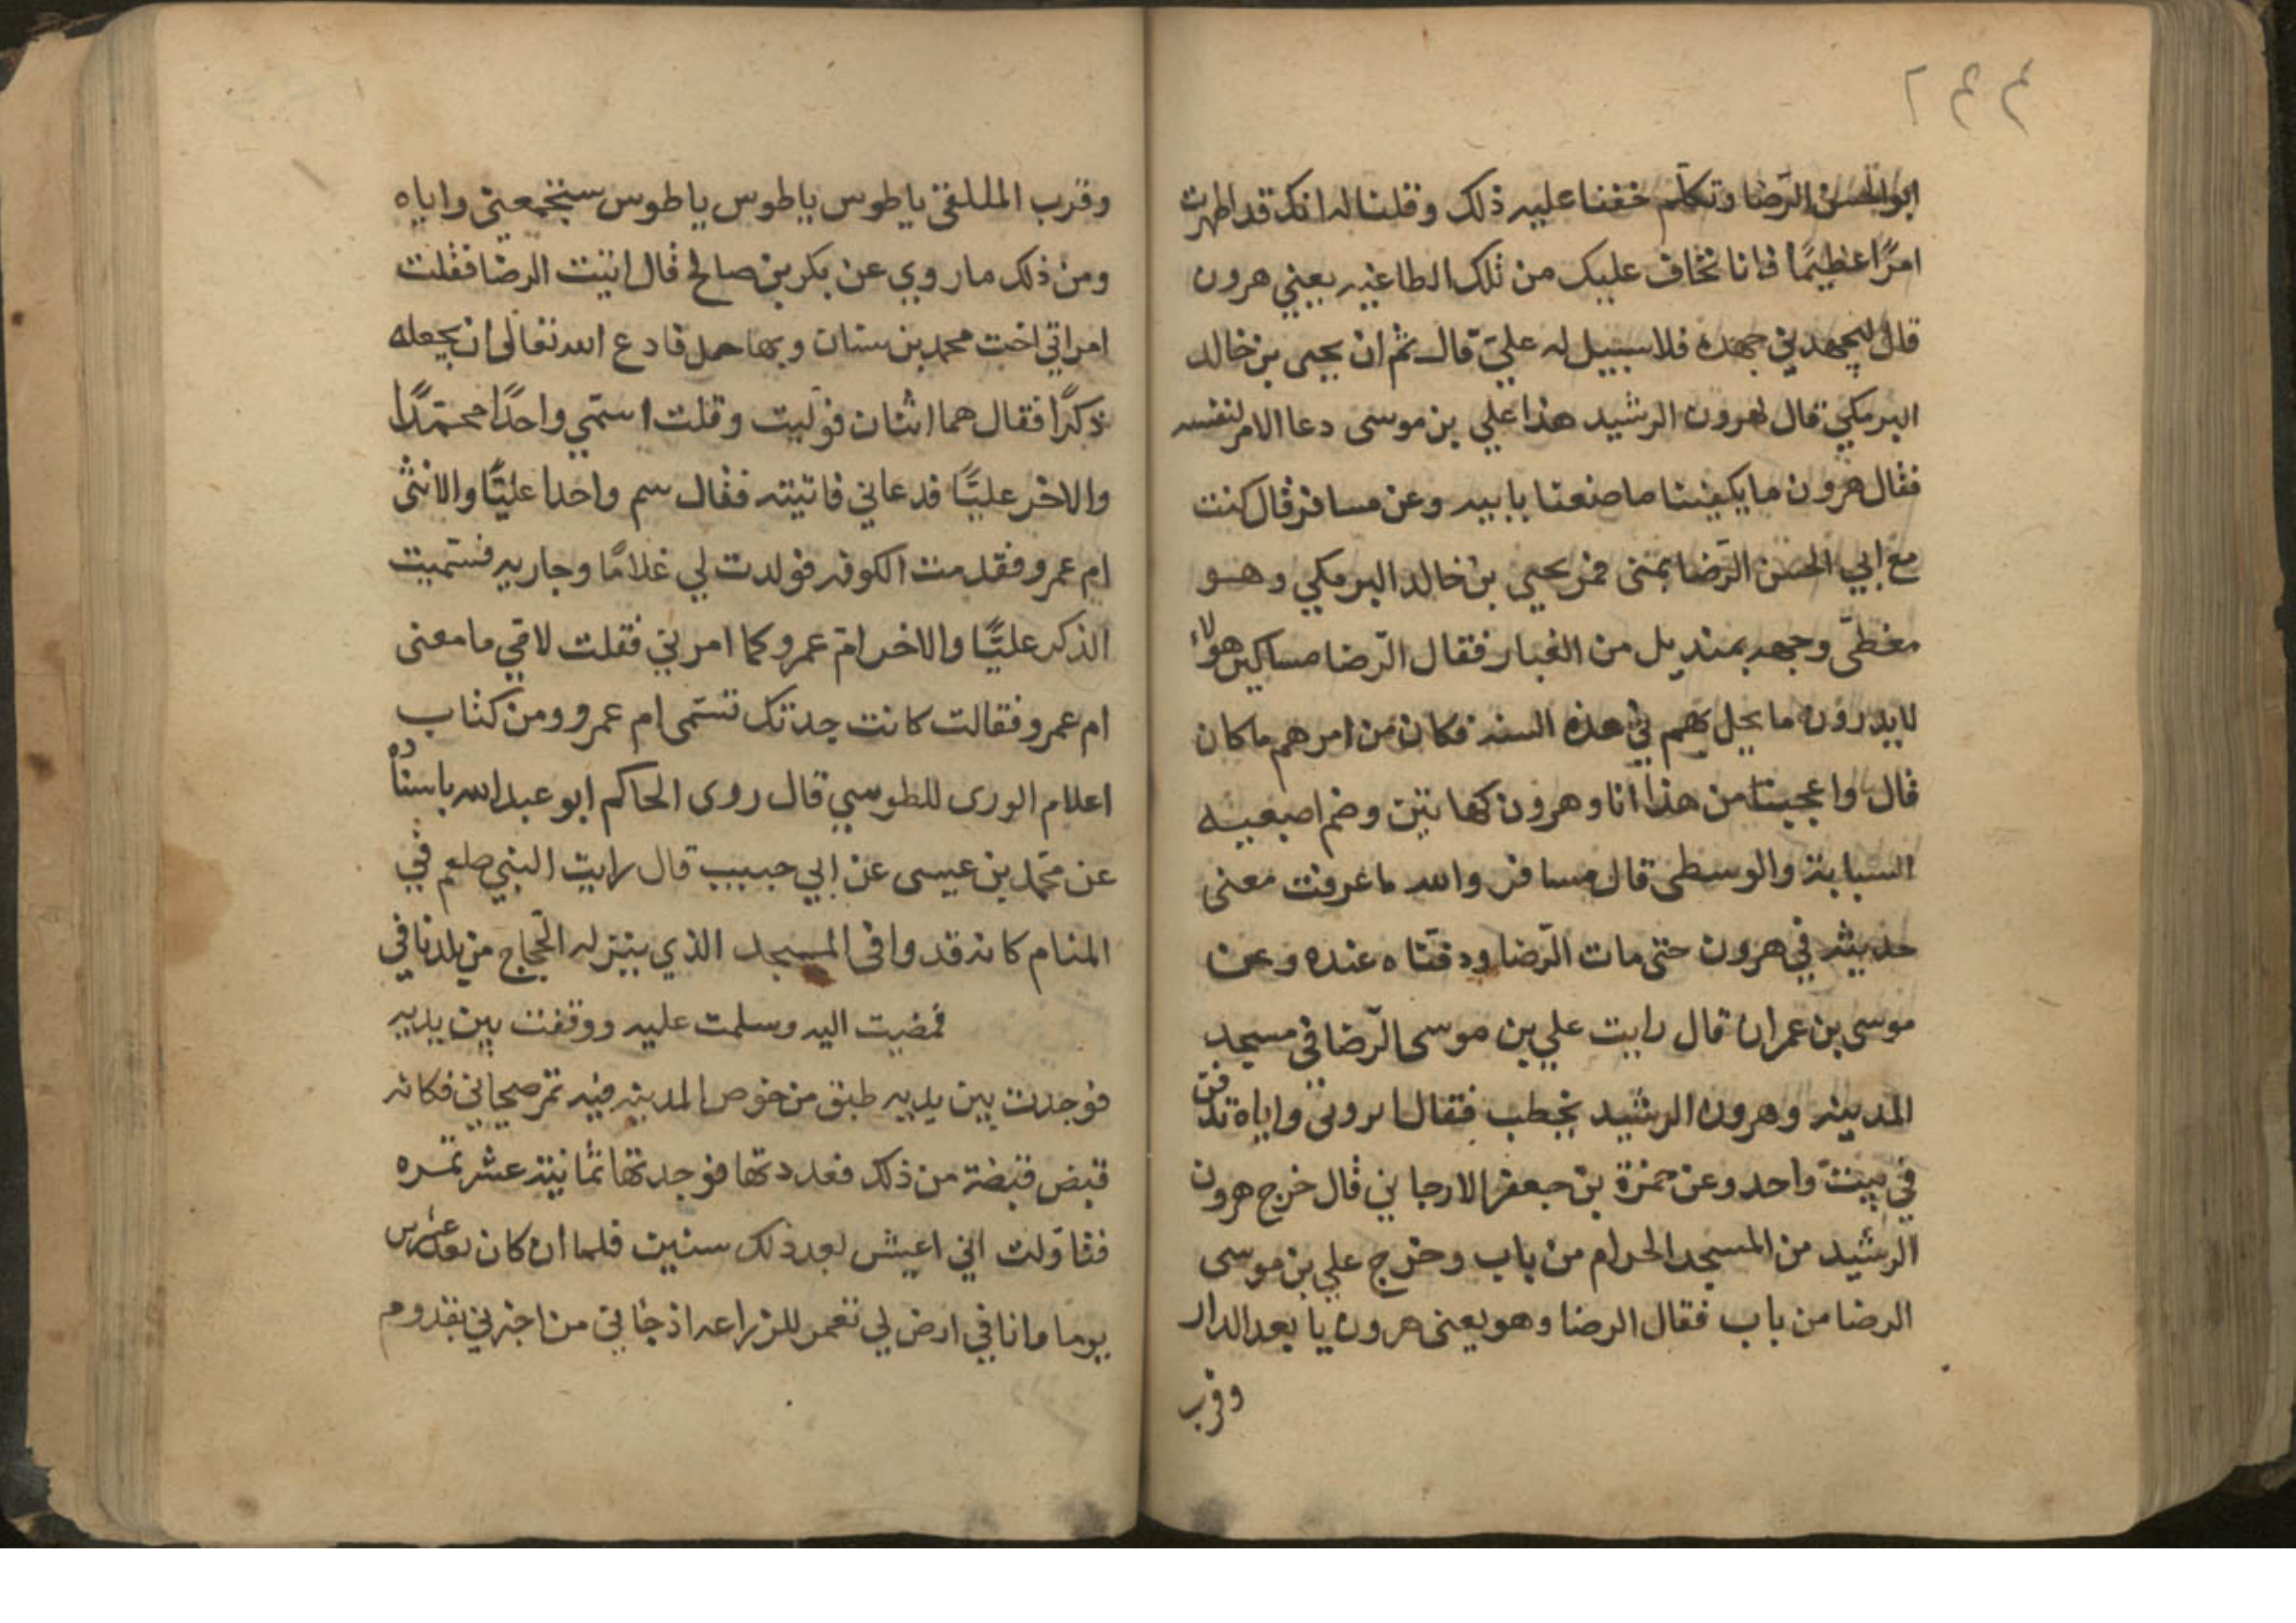 ٢٤٤
ابو الحسن الرّضا وتكلّم خفنا عليه ذلك وقلنا له انك قد اظهرت
امرًا عظيمًا فانا نخاف عليك من تلك الطاغيه يعني هرون
قال ليجهدني جهده فلا سبيل له عليّ قال ثم ان يحيى بن خالد
البرمكي قال لهرون الرشيد هذا علي بن موسى دعا الامر لنفسه
فقال هرون ما يكفينا ما صنعنا بابيه وعن مسافر قال كنت
مع ابي الحسن الرّضا بمنى فمر يحيى بن خالد البرمكي وهو
مغطّى وجهه بمنديل من الغبار فقال الرّضا مساكين هولاء
لا يدرون ما يحل بهم في هذه السنه فكان من امرهم ما كان
قال واعجبنا من هذا انا وهرون كهاتين وضم اصبعيه
السبابة والوسطى قال مسافر والله ما عرفت معنى
حديثه في هرون حتى مات الرّضا ودفنّاه عنده وعن
موسى بن عمران قال رايت علي بن موسى الرّضا في مسجد
المدينه وهرون الرشيد يخطب فقال اتروني واياه ندفن
في بيت واحد وعن حمزة بن جعفر الارجاني قال خرج هرون
الرشيد من المسجد الحرام من باب وخرج علي بن موسى
الرضا من باب فقال الرضا وهو يعنى هرون يا بعد الدار
وقرب
وقرب الملتقى يا طوس يا طوس يا طوس ستجمعني واياه
ومن ذلك ما روي عن بكر بن صالح قال اتيت الرضا فقلت
امراتي اخت محمد بن سنان وبها حمل فادع الله تعالى ان يجعله
ذكرًا فقال هما اثنان فولّيت وقلت اسمّي واحدًا محمّدًا
والاخر عليًّا فدعاني فاتيته فقال سم واحدا عليًّا والانثى
ام عمرو فقدمت الكوفه فولدت لي غلامًا وجاريه فسمّيت
الذكر عليًّا والاخر امّ عمرو كما امرني فقلت لامّي ما معنى
ام عمرو فقالت كانت جدتك تسمّى ام عمرو ومن كتاب
اعلام الورى للطوسي قال روى الحاكم ابو عبد الله باسناده
عن محمّد بن عيسى عن ابي حبيب قال رايت النبي صلعم في
المنام كانه قد وافى المسجد الذي ينزله الحجّاج من بلدنا في
فمضيت اليه وسلمت عليه ووقفت بين يديه
فوجدت بين يديه طبق من خوص المدينه فيه تمر صيحاني فكانه
قبض قبضة من ذلك فعددتها فوجدتها ثمانية عشر تمره
فتاولت اني اعيش بعد ذلك سنين فلما ان كان بعد عشرين
يوما وانا في ارض لي تعمر للزراعه اذ جاني من اخبرني بقدوم